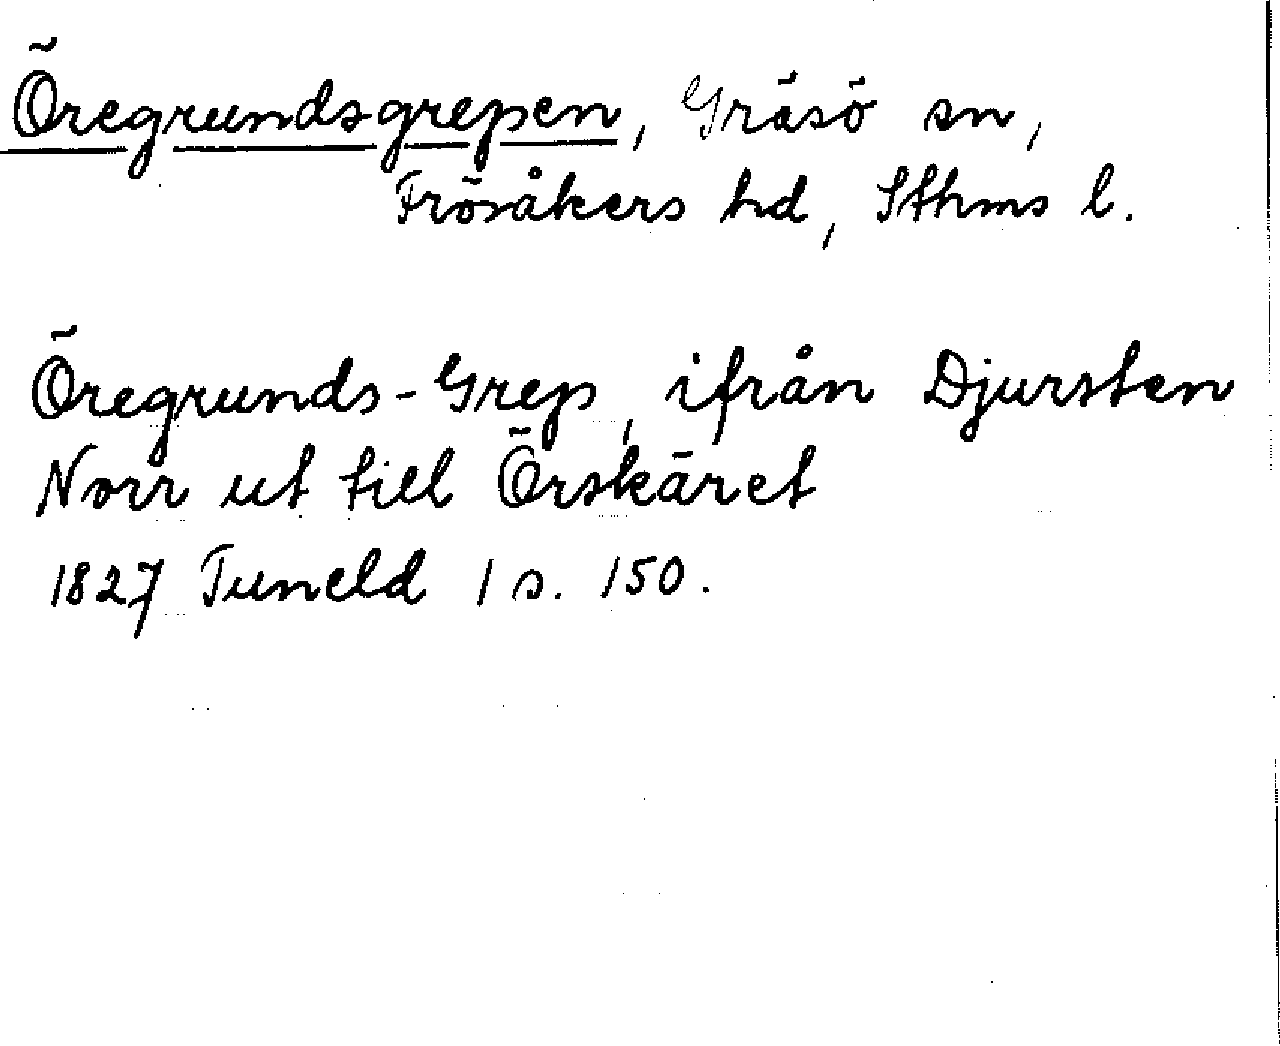 Öregrundsgrepen, Gräsö sn,
Frösåkers hd, Sthms l.
Öregrunds-Grep, ifrån Djursten
Norr ut till Örskäret
1827 Tuneld 1 s. 150.